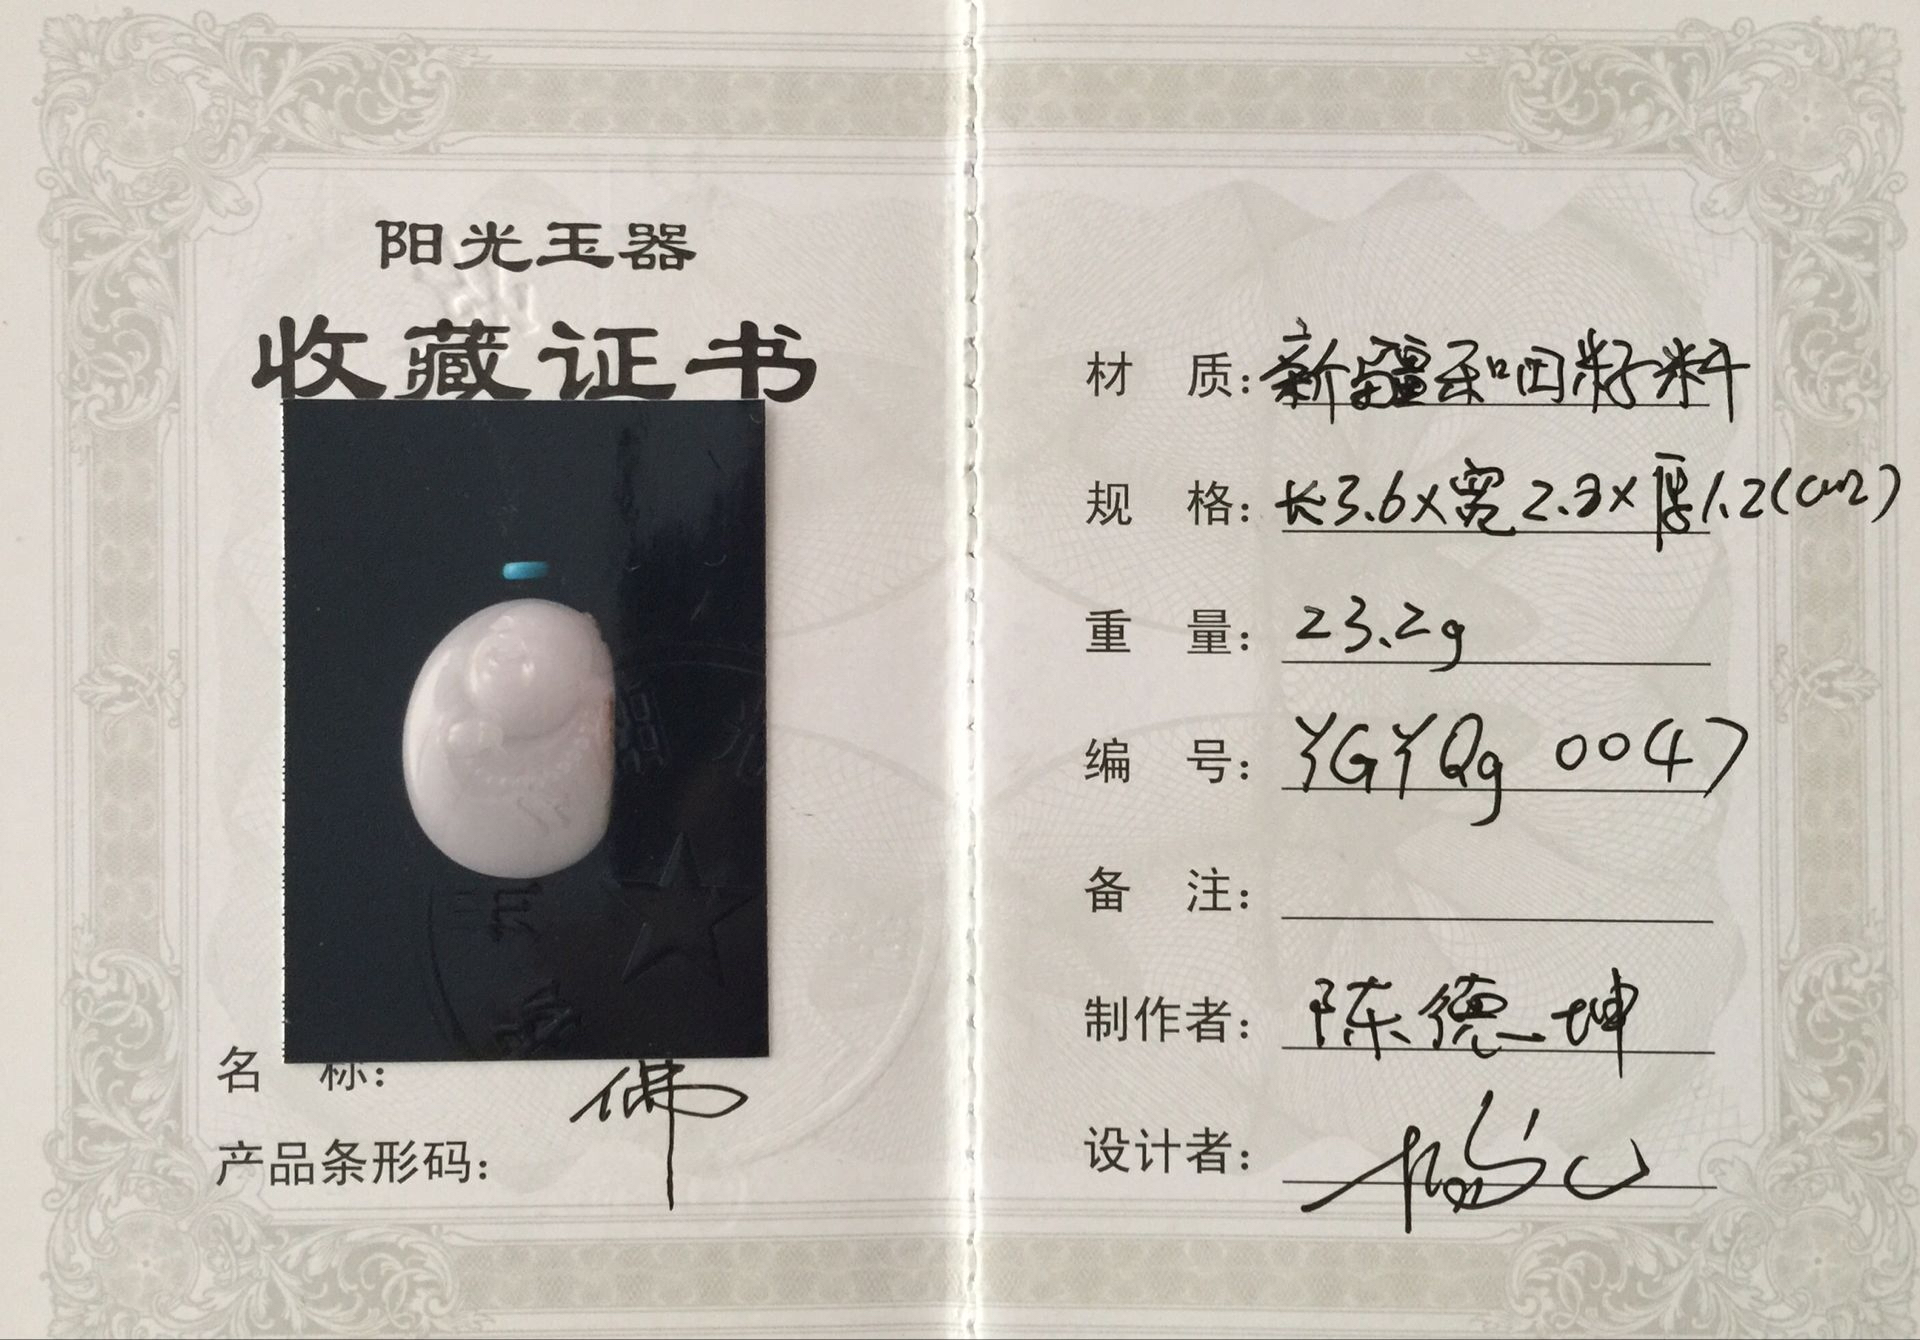 阳光玉器
收藏证书
名 称: 佛
产品条形码:
材 质: 新疆和田籽料
规 格: 长3.6×宽2.8×厚1.2(cm)
重 量: 23.2g
编 号: YGYQg 0047
备 注:
制作者: 陈德坤
设计者: